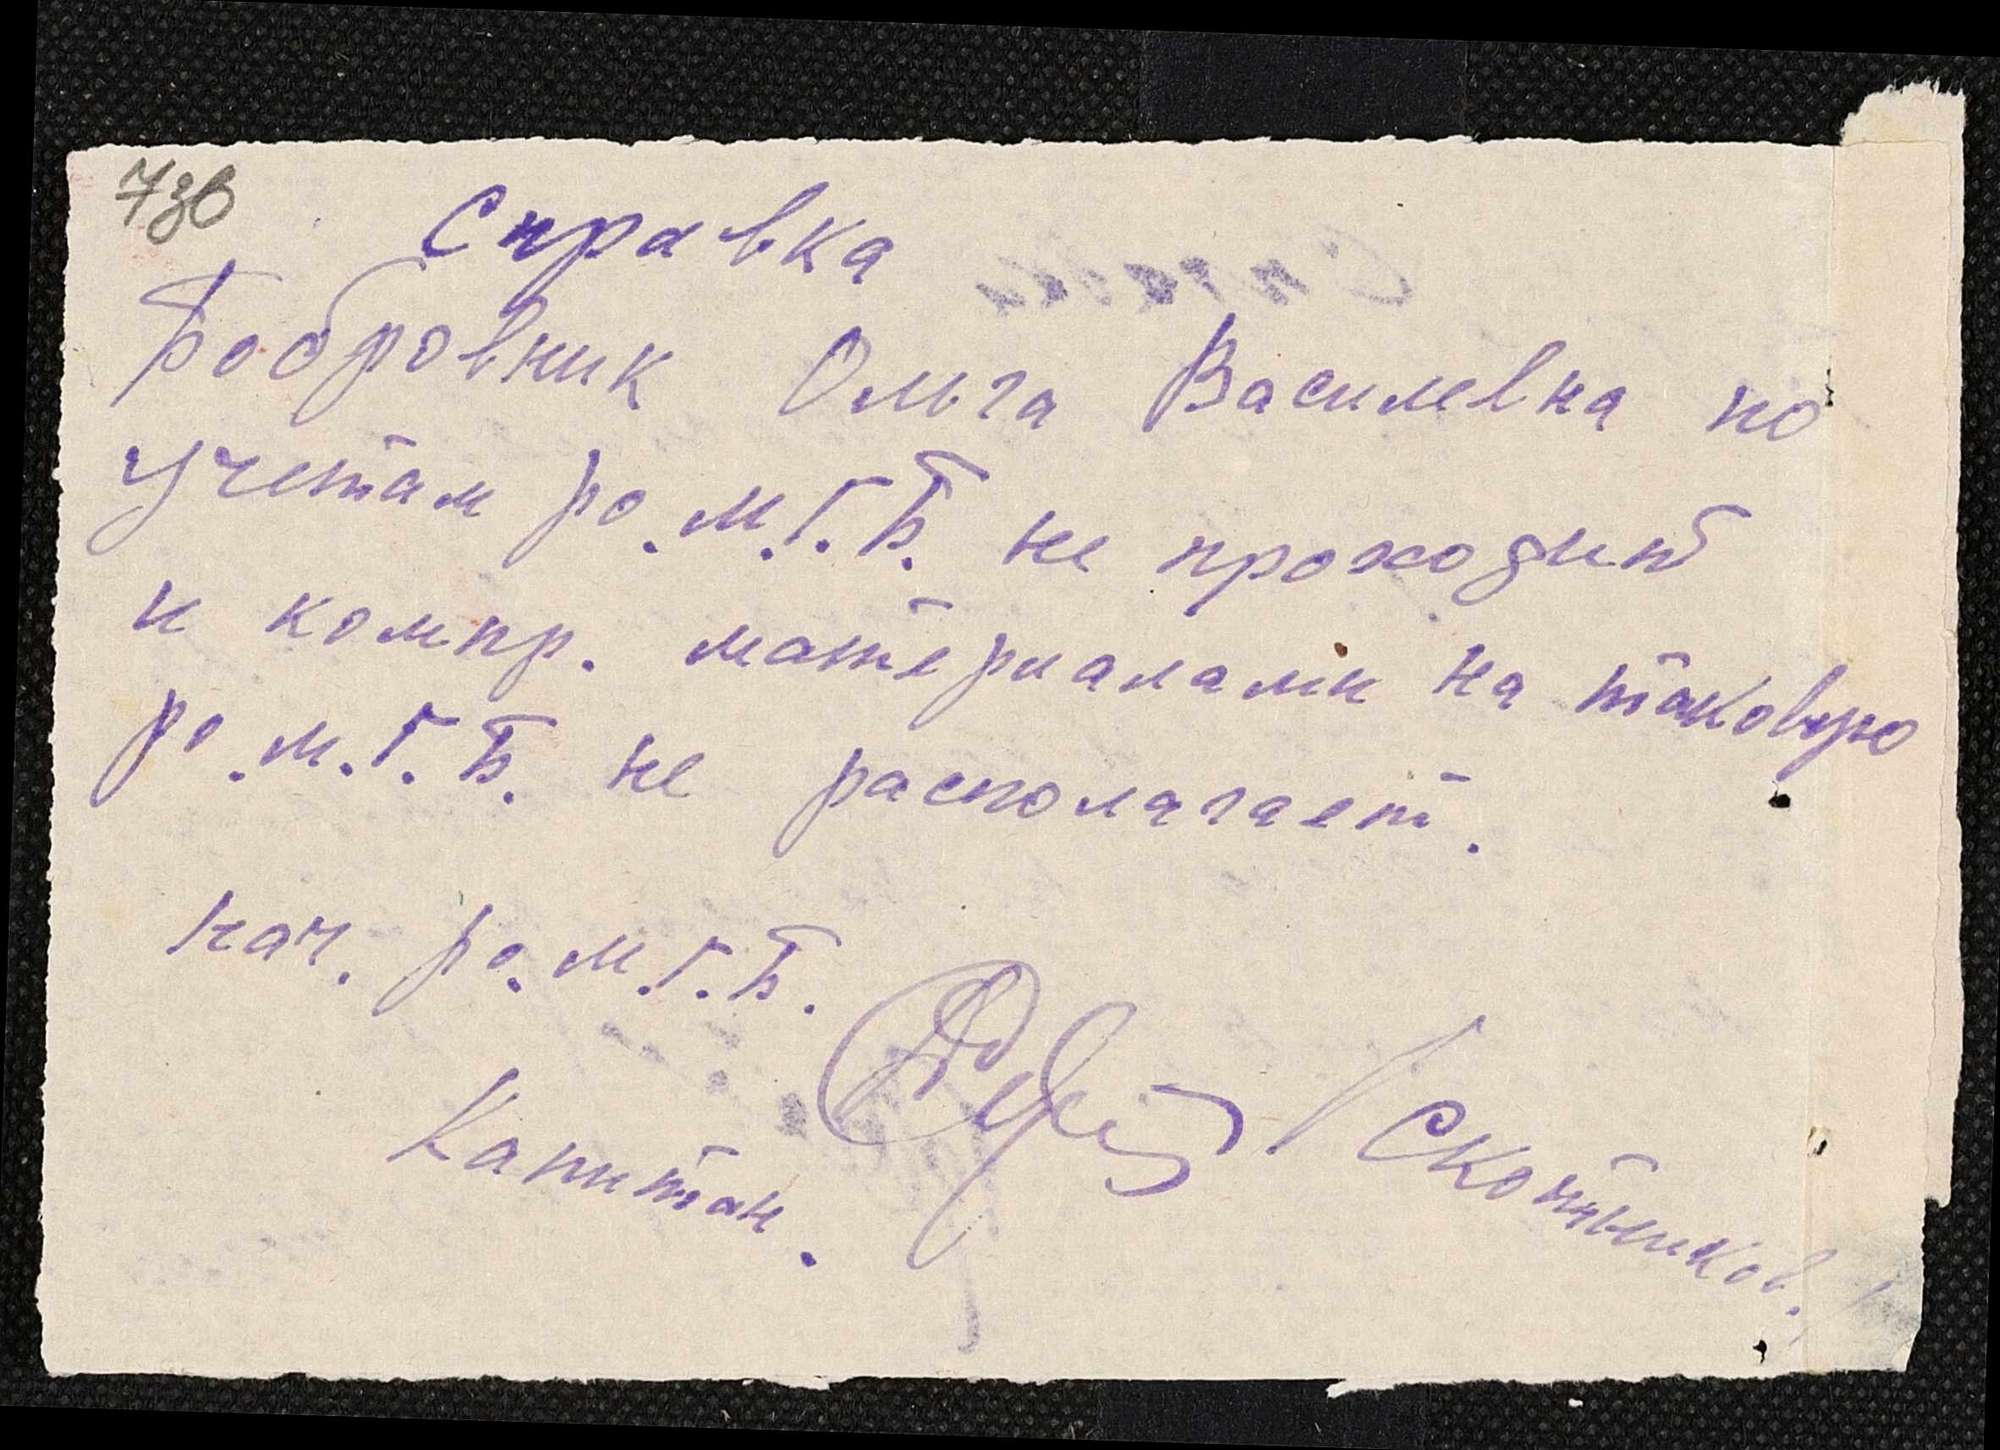 73в
Справка
Бобровник Ольга Василевна по
учетам ро. М.Г.Б. не проходит
и компр. материалами на таковую
ро. М.Г.Б. не располагает.
нач. ро. М.Г.Б.
Капитан. / Скотников. /